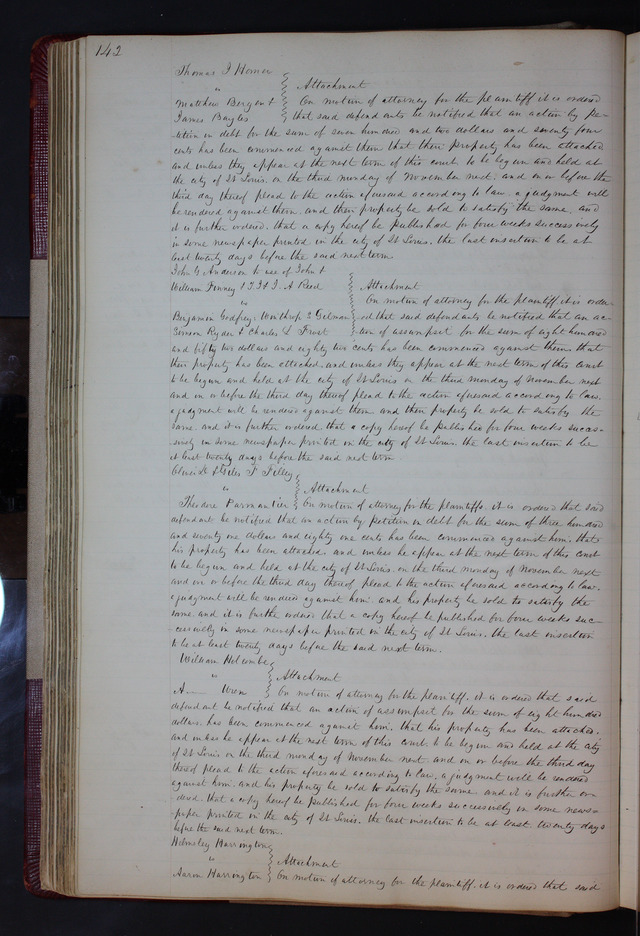 142
Thomas J Homer
" Attachment
Matthew Bergen & On motion of attorney for the plaintiff it is ordered
James Bayles that said defendants be notified that an action by pe-
tition in debt for the sum of seven hundred and two dollars and seventy four
cents has been commenced against them that their property has been attached
and unless they appear at the next term of this court to be begun and held at
the city of St Louis, on the third monday of November next, and on or before the
third day thereof plead to the action aforesaid according to law, a judgment will
be rendered against them, and their property be sold to satisfy the same, and
it is further ordered, that a copy hereof be published for four weeks successively
in some newspaper printed in the city of St Louis, the last insertion to be at
least twenty days before the said next term
John G Anderson to use of John &
William Finney & J & A Reed Attachment
" On motion of attorney for the plaintiff it is order
Benjamin Godfrey, Winthrop S Gilman ed that said defendants be notified that an ac
Ryder & Charles L Frost tion of assumpsit for the sum of eight hundred
and fifty two dollars and eighty two cents has been commenced against them that
their property has been attached, and unless they appear at the next term of this court
to be begun and held at the city of St Louis on the third monday of November next
and on or before the third day thereof plead to the action aforesaid according to law,
a judgment will be rendered against them and their property be sold to satisfy the
same, and it is further ordered, that a copy hereof be published for four weeks succes-
sively in some newspaper printed in the city of St Louis, the last insertion to be
at least twenty days before the said next term
Oliver D & Giles F Filley
" Attachment
Theodore Parmantier On motion of attorney for the plaintiffs, it is ordered that said
defendant be notified that an action by petition in debt for the sum of three hundred
and seventy one dollars and eighty one cents has been commenced against him, that
his property has been attached and unless he appear at the next term of this court
to be begun and held at the city of St Louis, on the third monday of November next
and on or before the third day thereof, plead to the action aforesaid according to law,
a judgment will be rendered against him, and his property be sold to satisfy the
same and it is further ordered that a copy hereof be published for four weeks suc-
cessively in some newspaper printed in the city of St Louis, the last insertion
to be at least twenty days before the said next term.
William Holcombe
" Attachment
A— Wren On motion of attorney for the plaintiff, it is ordered that said
defendant be notified that an action of assumpsit for the sum of eight hundred
dollars has been commenced against him, that his property has been attached,
and unless he appear at the next term of this court to be begun and held at the city
of St Louis on the third monday of November next and on or before the third day
thereof plead to the action aforesaid according to law, a judgment will be rendered
against him, and his property be sold to satisfy the same, and it is further or-
dered, that a copy hereof be published for four weeks successively in some news-
paper printed in the city of St Louis, the last insertion to be at least twenty days
before the said next term.
Helmsley Harrington
" Attachment
Aaron Harrington On motion of attorney for the plaintiff, it is ordered that said